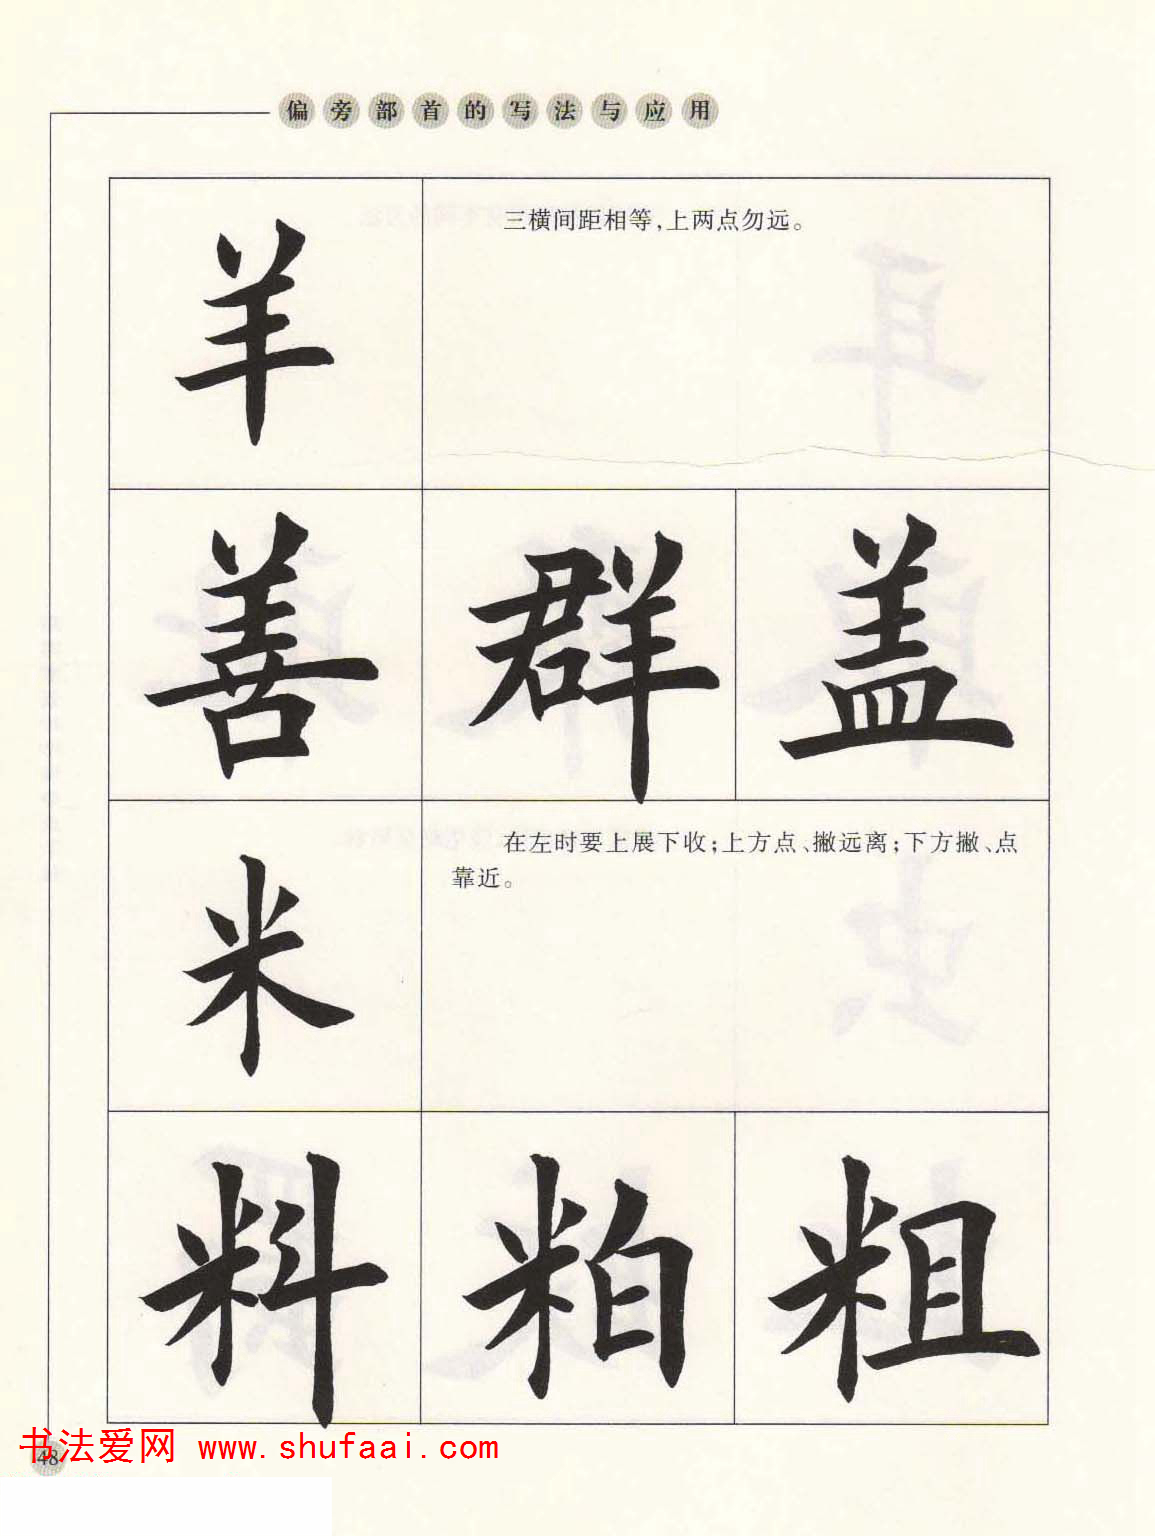 偏旁部首的写法与应用
羊
三横间距相等，上两点勿远。
善 群 盖
米
在左时要上展下收；上方点、撇远离；下方撇、点
靠近。
料 粕 粗
书法爱网 www.shufaai.com
48